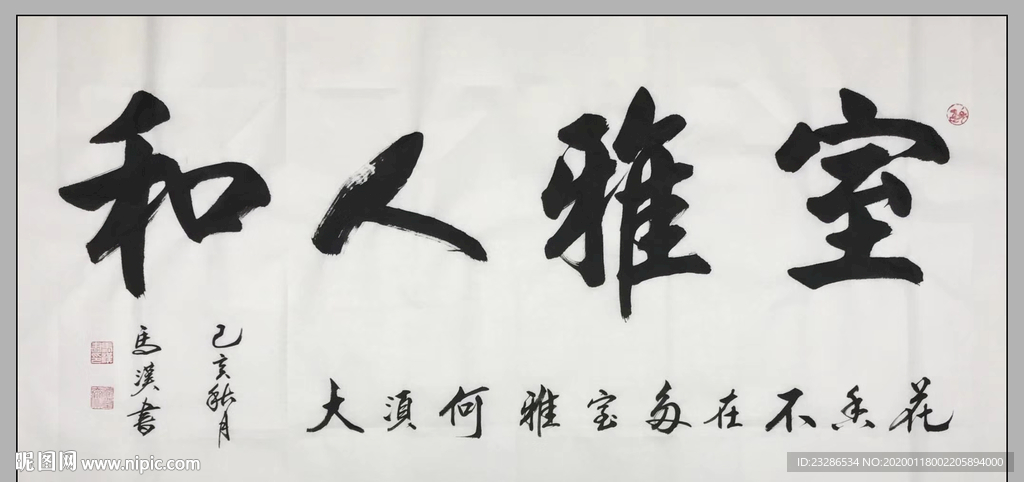 室雅人和
花香不在多室雅何須大
己亥秋月
馬漢書
昵图网 www.nipic.com
ID:23286534 NO:20200118002205894000